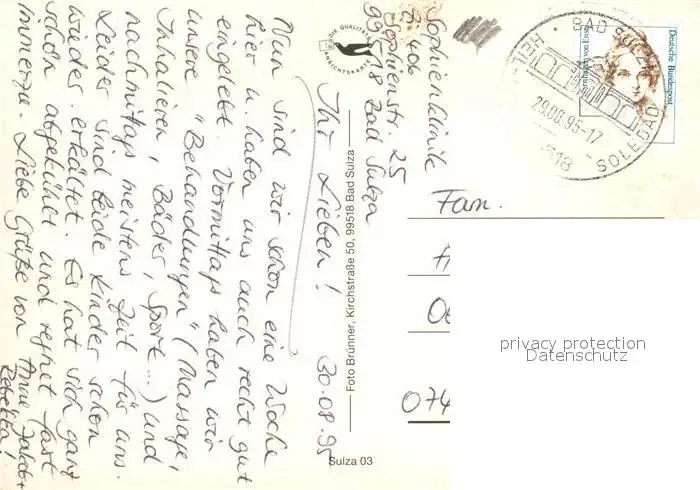 Sophienklinik
Z. 406
Sophienstr. 25
99518 Bad Sulza
30.08.95
Ihr Lieben!
Nun sind wir schon eine Woche
hier u. haben uns auch recht gut
eingelebt. Vormittags haben wir
unsere "Behandlungen" (Massage,
Inhalieren, Bäder, Sport...) und
nachmittags meistens Zeit für uns.
Leider sind beide Kinder schon
wieder erkältet. Es hat sich ganz
schön abgekühlt und regnet fast
immerzu. Liebe Grüße von
DIE QUALITÄTS
ANSICHTSKARTE
Foto Brünner, Kirchstraße 50, 99518 Bad Sulza
Sulza 03
Deutsche Bundespost
BAD SULZA
29.08.95-17
SOLEBAD
518
Fam.
074
privacy protection
Datenschutz